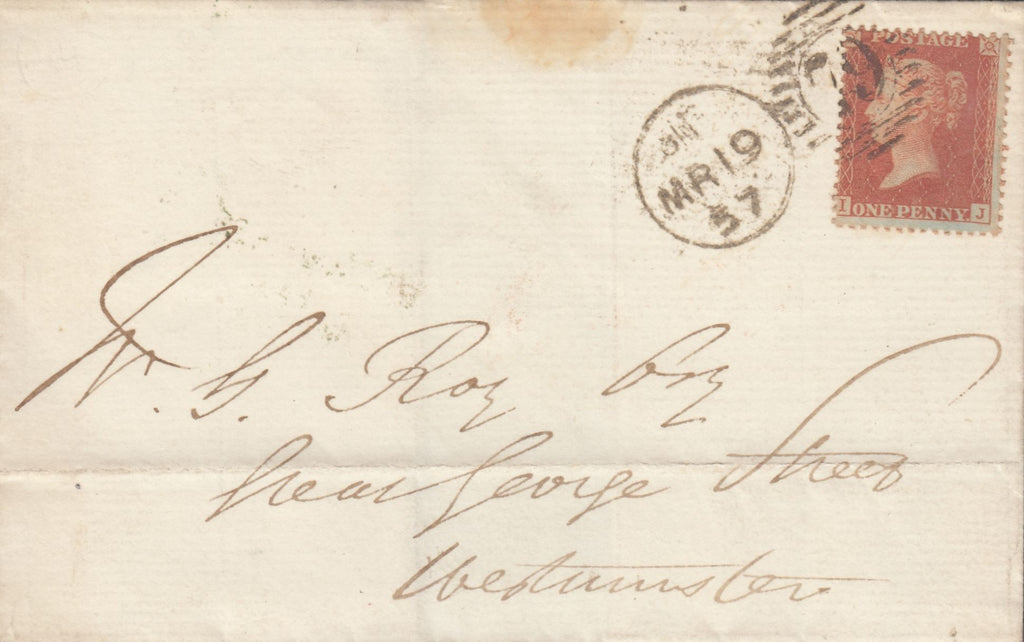 POSTAGE
MR 19
57
I ONE PENNY. J
W. G. Roy Esq
Great George Street
Westminster